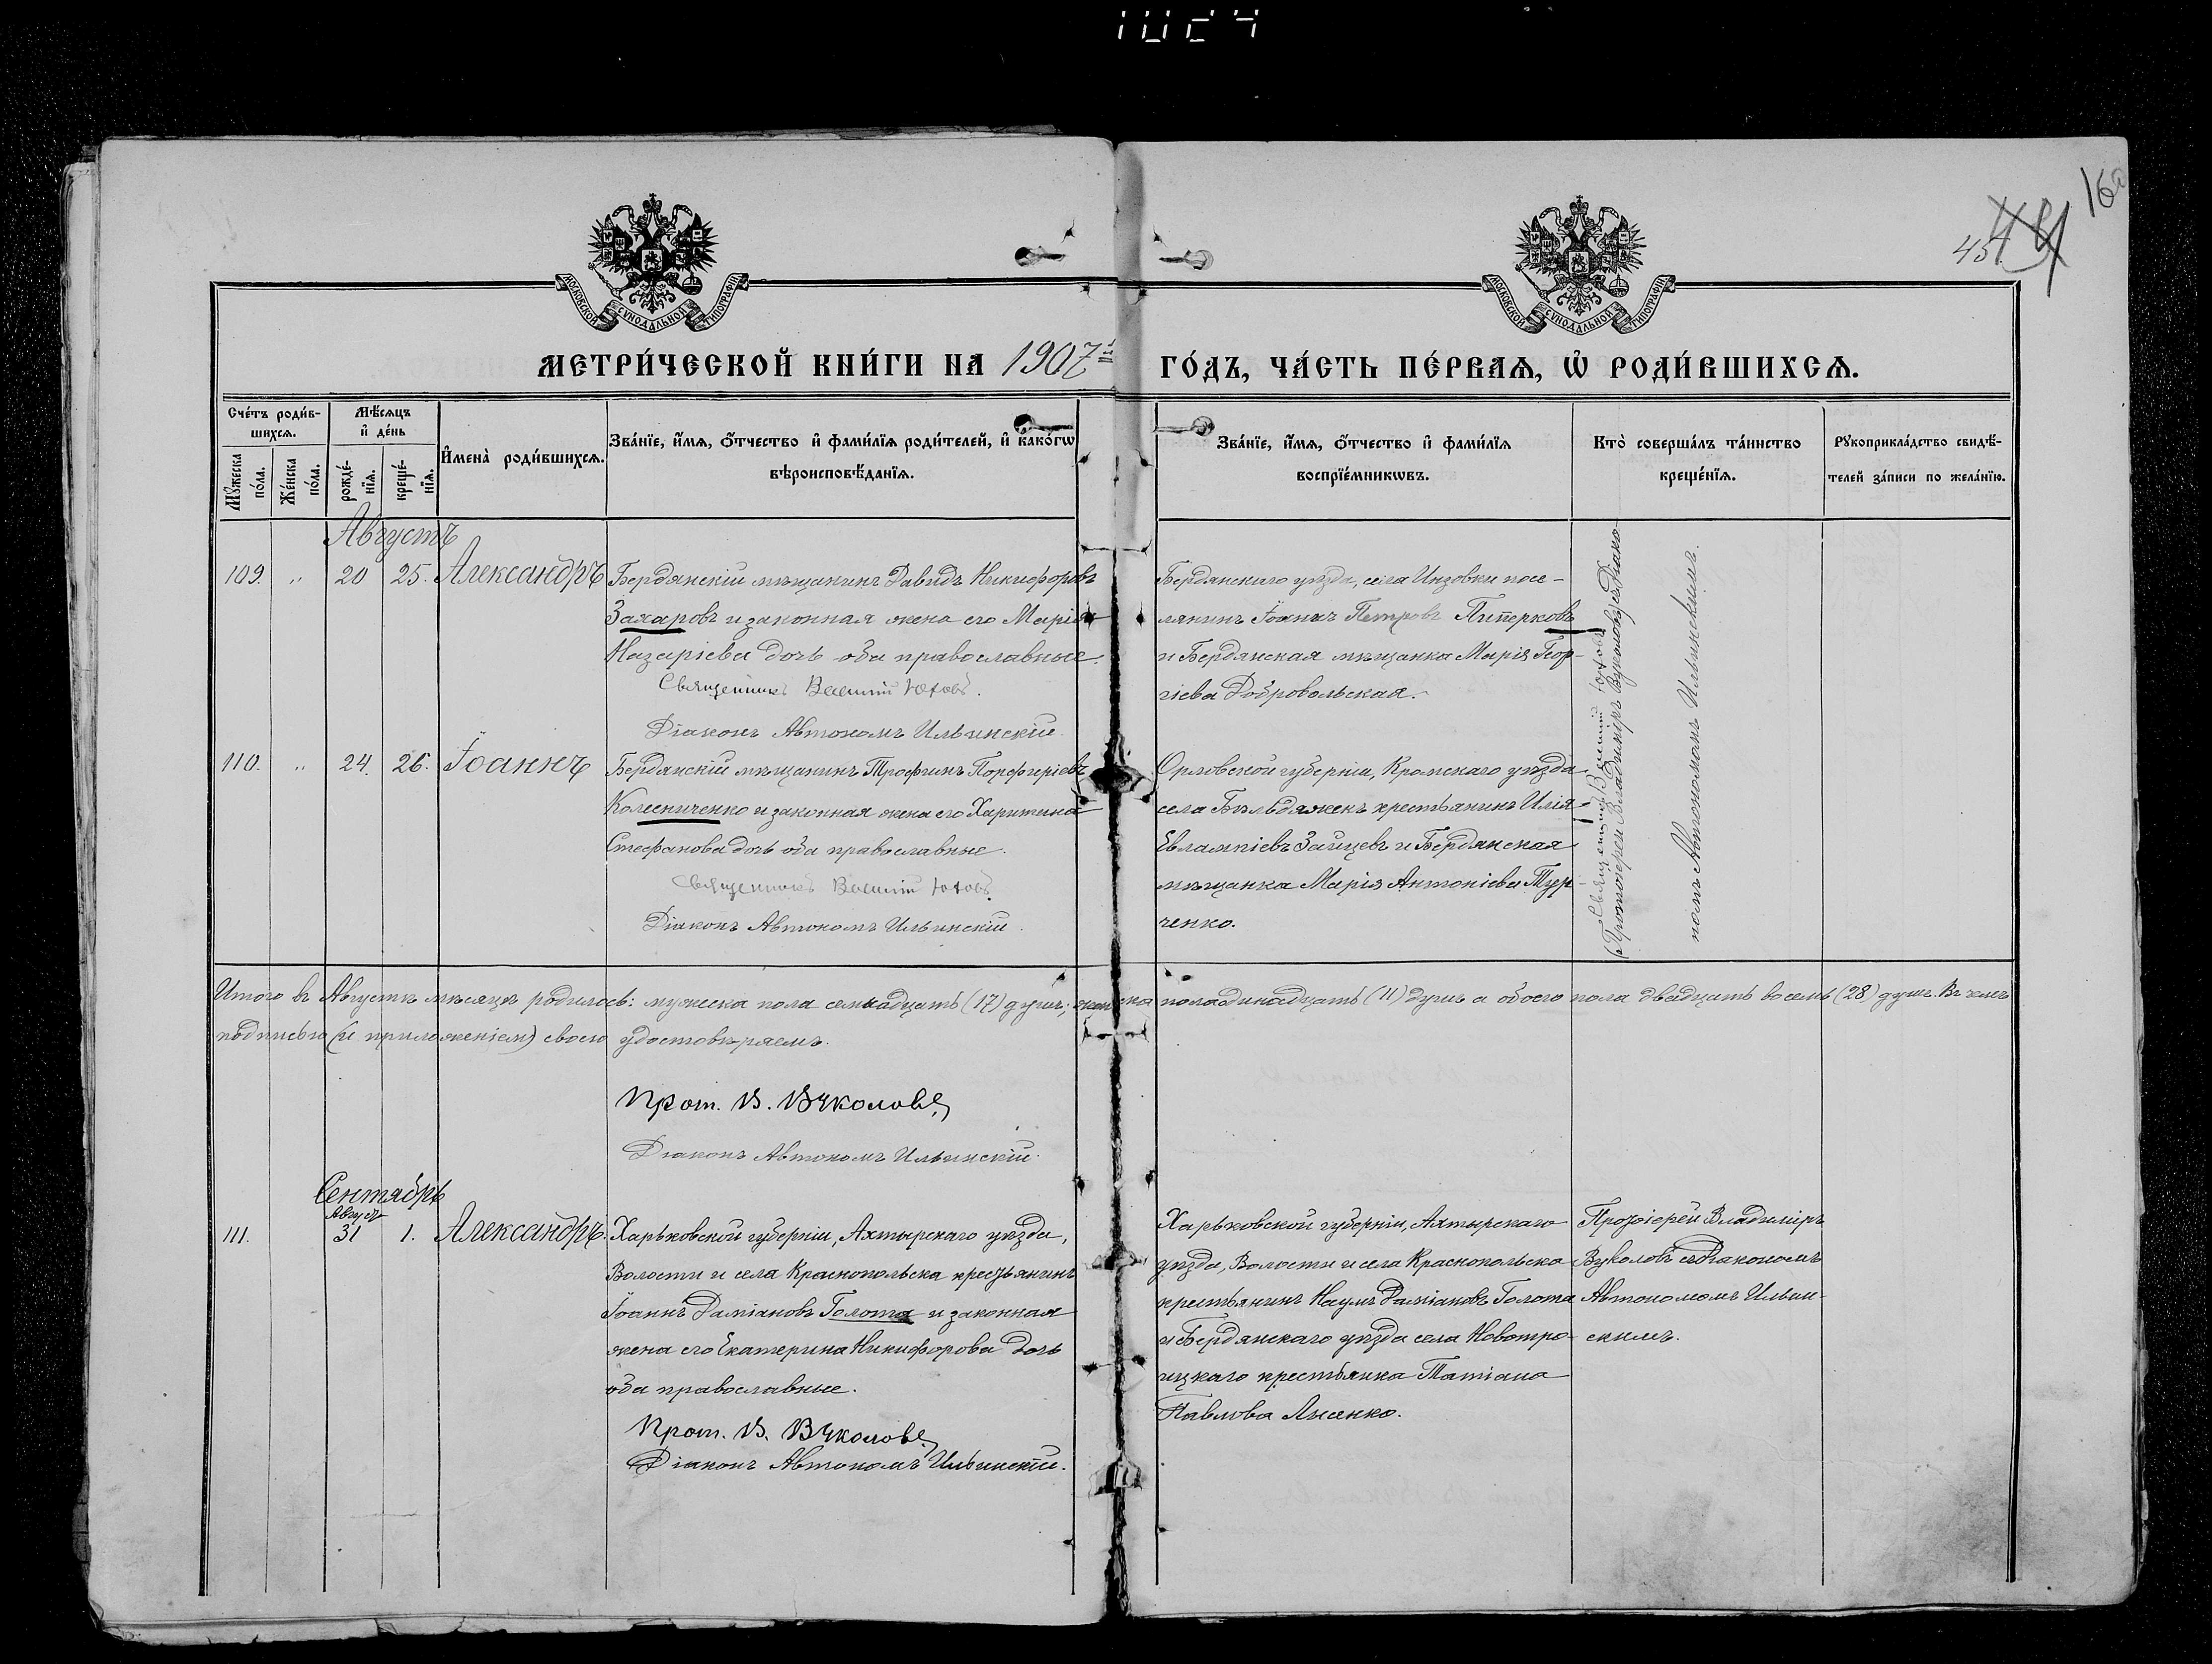 160
45
МОСКОВСКОЙ СѴНОДАЛЬНОЙ ТИПОГРАФІИ
МОСКОВСКОЙ СѴНОДАЛЬНОЙ ТИПОГРАФІИ
МЕТРИ́ЧЕСКОЙ КНИ́ГИ НА 1907й ГО́ДЪ, ЧА́СТЬ ПЕ́РВАѦ, Ѡ҆ РОДИ́ВШИХСѦ.
Сче́тъ роди́в-
шихсѧ.
Мѣ́сѧцъ
и҆ де́нь
Мꙋ́жеска
по́ла.
Же́нска
по́ла.
рожде́-
нїѧ.
креще́-
нїѧ.
И҆мена̀ роди́вшихсѧ.
Зва́нїе, и҆́мѧ, ѻ҆́тчество и҆ фами́лїѧ роди́телей, и҆ како́гѡ
вѣроисповѣ́данїѧ.
Зва́нїе, и҆́мѧ, ѻ҆́тчество и҆ фами́лїѧ
воспрїе́мникѡвъ.
Кто̀ соверша́лъ та́инство
креще́нїѧ.
Рꙋкоприкла́дство свидѣ́-
телей за́писи по жела́нїю.
Августъ
109. " 20 25. Александръ
Бердянскій мѣщанинъ Давидъ Никифоровъ
Захаровъ и законная жена его Марія
Назаріева дочь оба православные.
Священникъ Василій Юховъ.
Діаконъ Автономъ Ильинскій
Бердянскаго уѣзда, села Инзовки посе-
лянинъ Іоаннъ Петровъ Питерковъ
и Бердянская мѣщанка Марія Геор-
гіева Добровольская.
Священникъ Василій Юховъ
Протоіерей Владиміръ Вуколовъ съ Діако-
номъ Автономомъ Ильинскимъ.
110. " 24. 26. Іоаннъ
Бердянскій мѣщанинъ Трофимъ Порфиріевъ
Колесниченко и законная жена его Харитина
Стефанова дочь оба православные.
Священникъ Василій Юховъ.
Діаконъ Автономъ Ильинскій.
Орловской губерніи, Кромскаго уѣзда
села крестьянинъ Илія
Евлампіевъ Зайцевъ и Бердянская
мѣщанка Марія Антоніева Тур-
ченко.
Итого въ Августѣ мѣсяцѣ родилось: мужеска пола семнадцать (17) душъ; женска пола одинадцать (11) душъ а обоего пола двадцать восемь (28) душъ. Въ чемъ
подписью (и приложеніемъ) своею удостовѣряемъ.
Прот. В. Вуколовъ
Діаконъ Автономъ Ильинскій.
Сентябрь
Август
111. 31 1. Александръ.
Харьковской губерніи, Ахтырскаго уѣзда,
Волости и села Краснопольска крестьянинъ
Іоаннъ Даміановъ Голота и законная
жена его Екатерина Никифорова дочь
оба православные.
Прот. В. Вуколовъ
Діаконъ Автономъ Ильинскій.
Харьковской губерніи, Ахтырскаго
уѣзда, Волости и села Краснопольска
крестьянинъ Наумъ Даміановъ Голота
и Бердянскаго уѣзда села Новотро-
ицкаго крестьянка Татіана
Павлова
Протоіерей Владиміръ
Вуколовъ съ Діакономъ
Автономомъ Ильин-
скимъ.